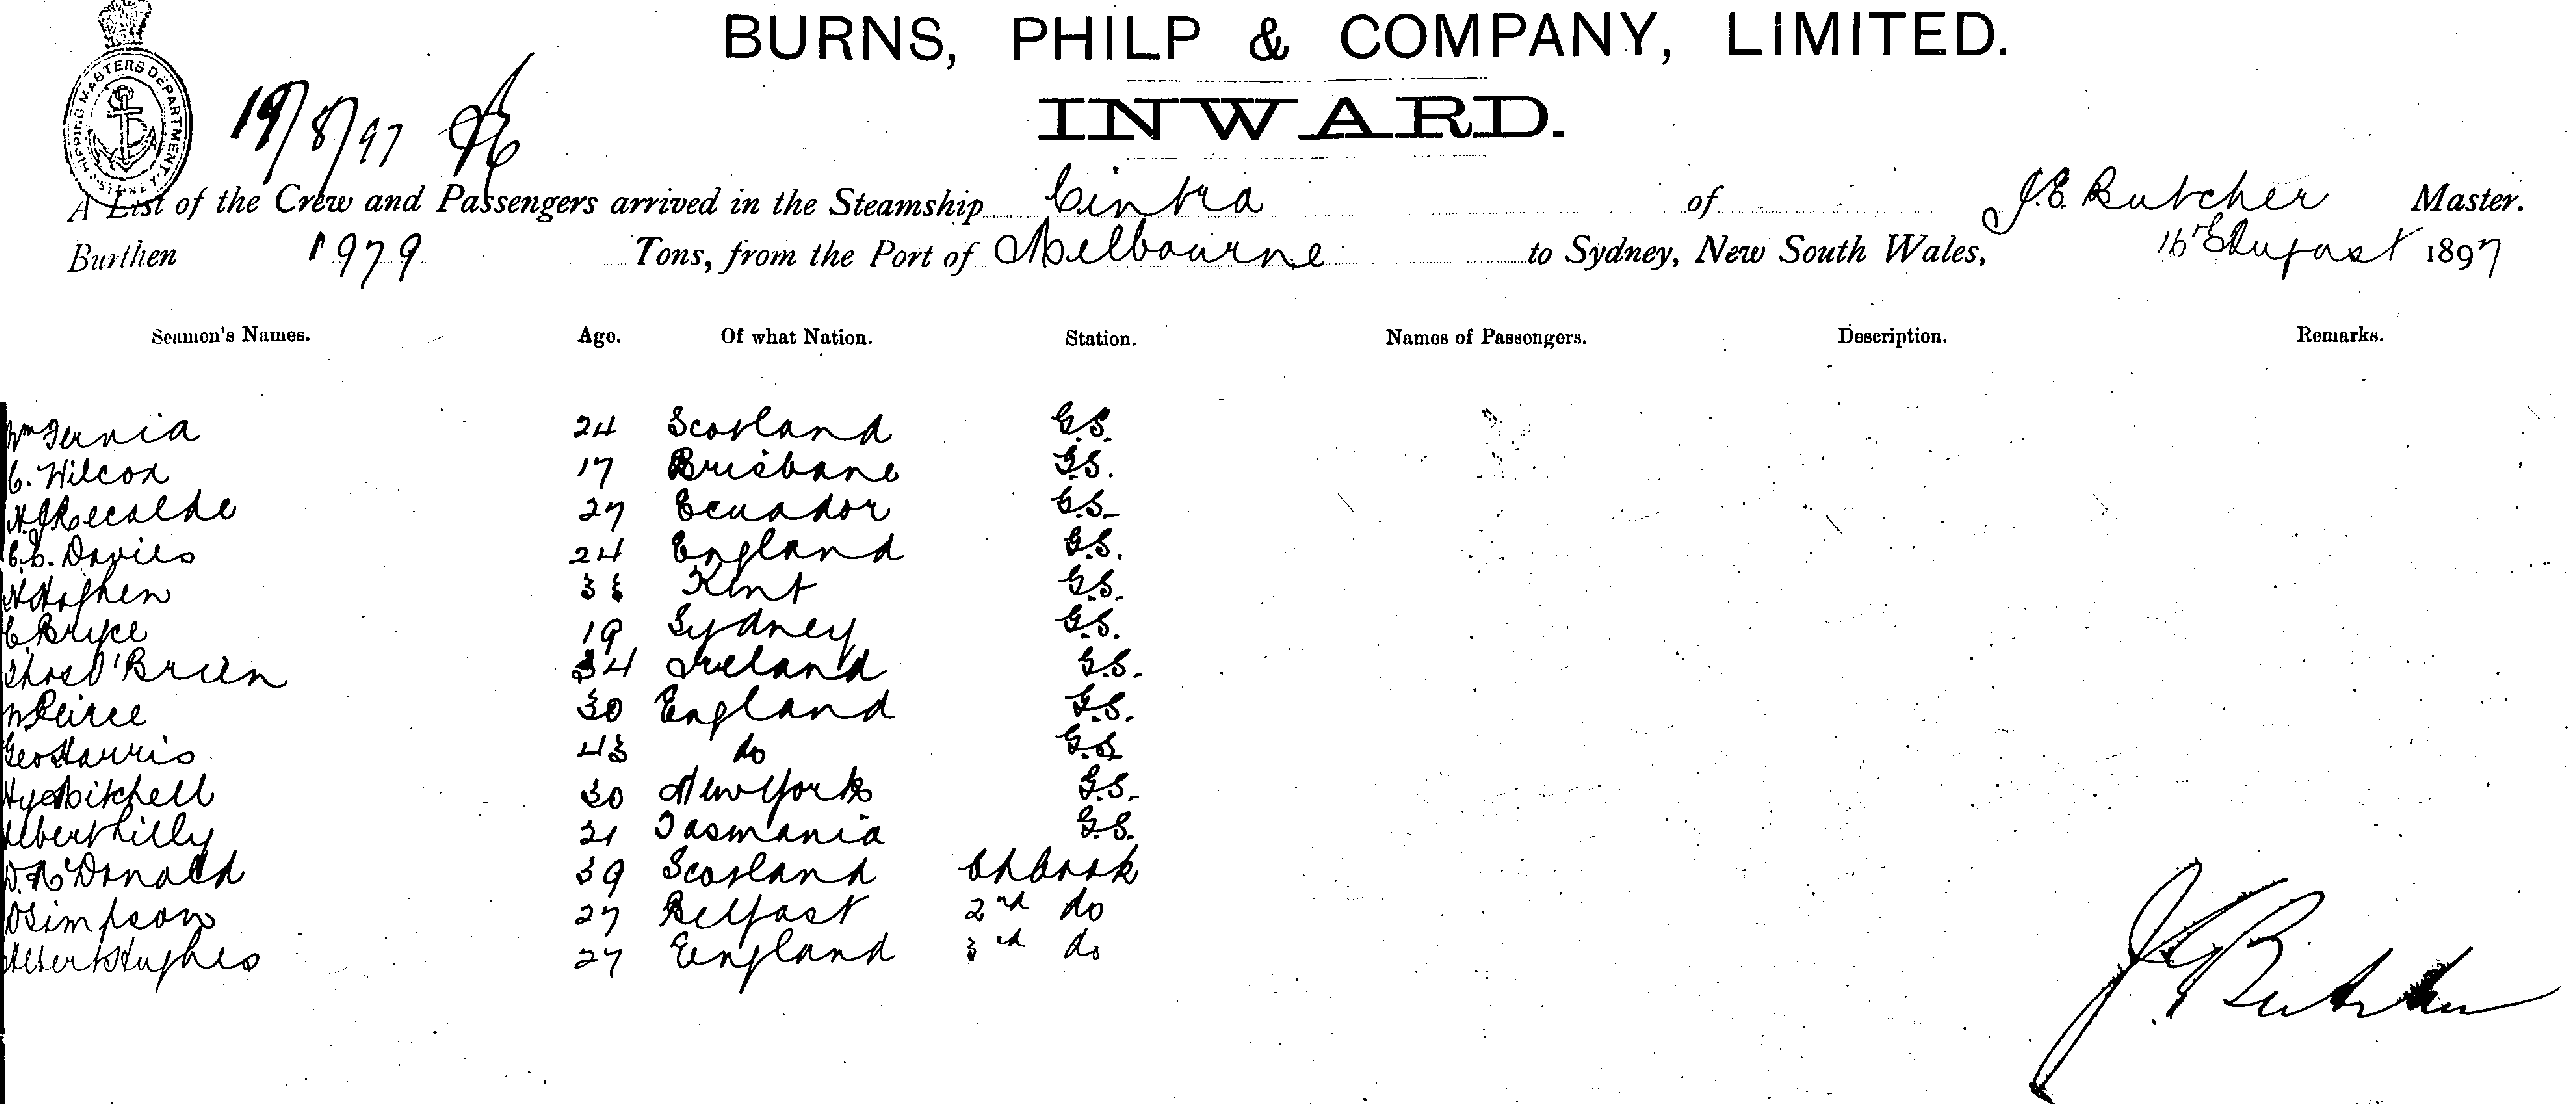 BURNS, PHILP & COMPANY, LIMITED.
INWARD.
SHIPPING MASTERS DEPARTMENT
19/8/97
A List of the Crew and Passengers arrived in the Steamship Cintra of J.E. Butcher Master.
Burthen 1979 Tons, from the Port of Melbourne to Sydney, New South Wales, 16th August 1897
Seamen's Names. Age. Of what Nation. Station. Names of Passengers. Description. Remarks.
Wm 24 Scotland G.S.
C. Wilcox 17 Brisbane G.S.
Recalde 27 Ecuador G.S.
C.C. Davies 24 England G.S.
33 Kent G.S.
C. Bryce 19 Sydney G.S.
Thos O'Brien 34 Ireland G.S.
W Peirce 30 England G.S.
Geo Harris 43 do G.S.
Hy Mitchell 30 New York G.S.
Albert Lilly 21 Tasmania G.S.
D. McDonald 39 Scotland Ch Cook
D Simpson 27 Belfast 2nd do
Albert Hughes 27 England 3rd do
J E Butcher